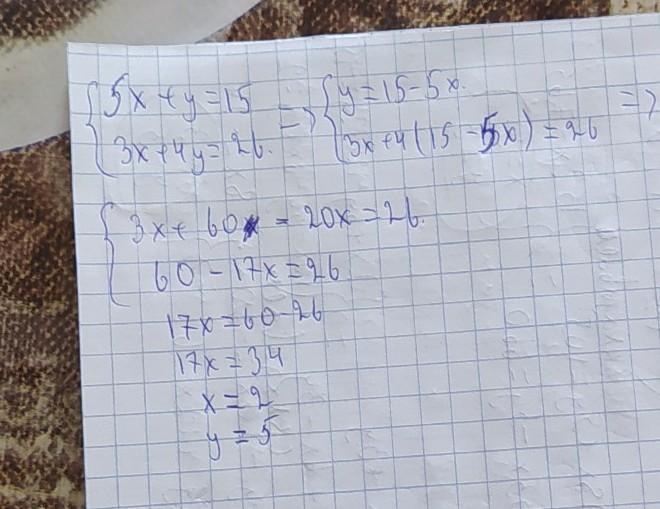 {5x+y=15 => {y=15-5x.
{3x+4y=26. {3x+4(15-5x)=26 =>
{3x+60-20x=26.
60-17x=26
17x=60-26
17x=34
x=2
y=5